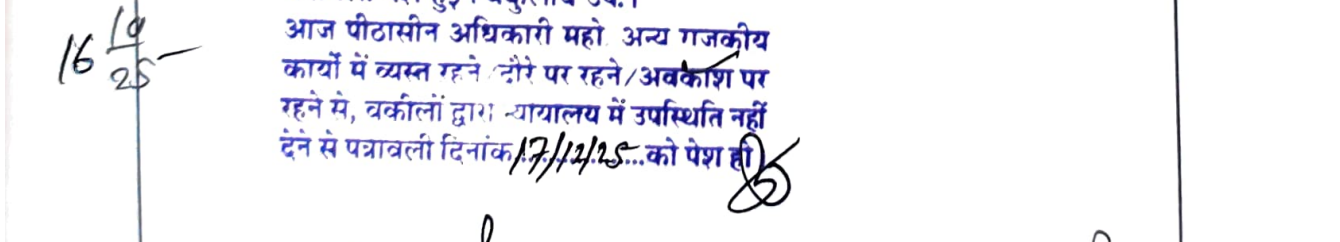 16 10/25 —
आज पीठासीन अधिकारी महो. अन्य राजकीय
कार्यों में व्यस्त रहने/दौरे पर रहने/अवकाश पर
रहने से, वकीलों द्वारा न्यायालय में उपस्थिति नहीं
देने से पत्रावली दिनांक 17/12/25 को पेश हो